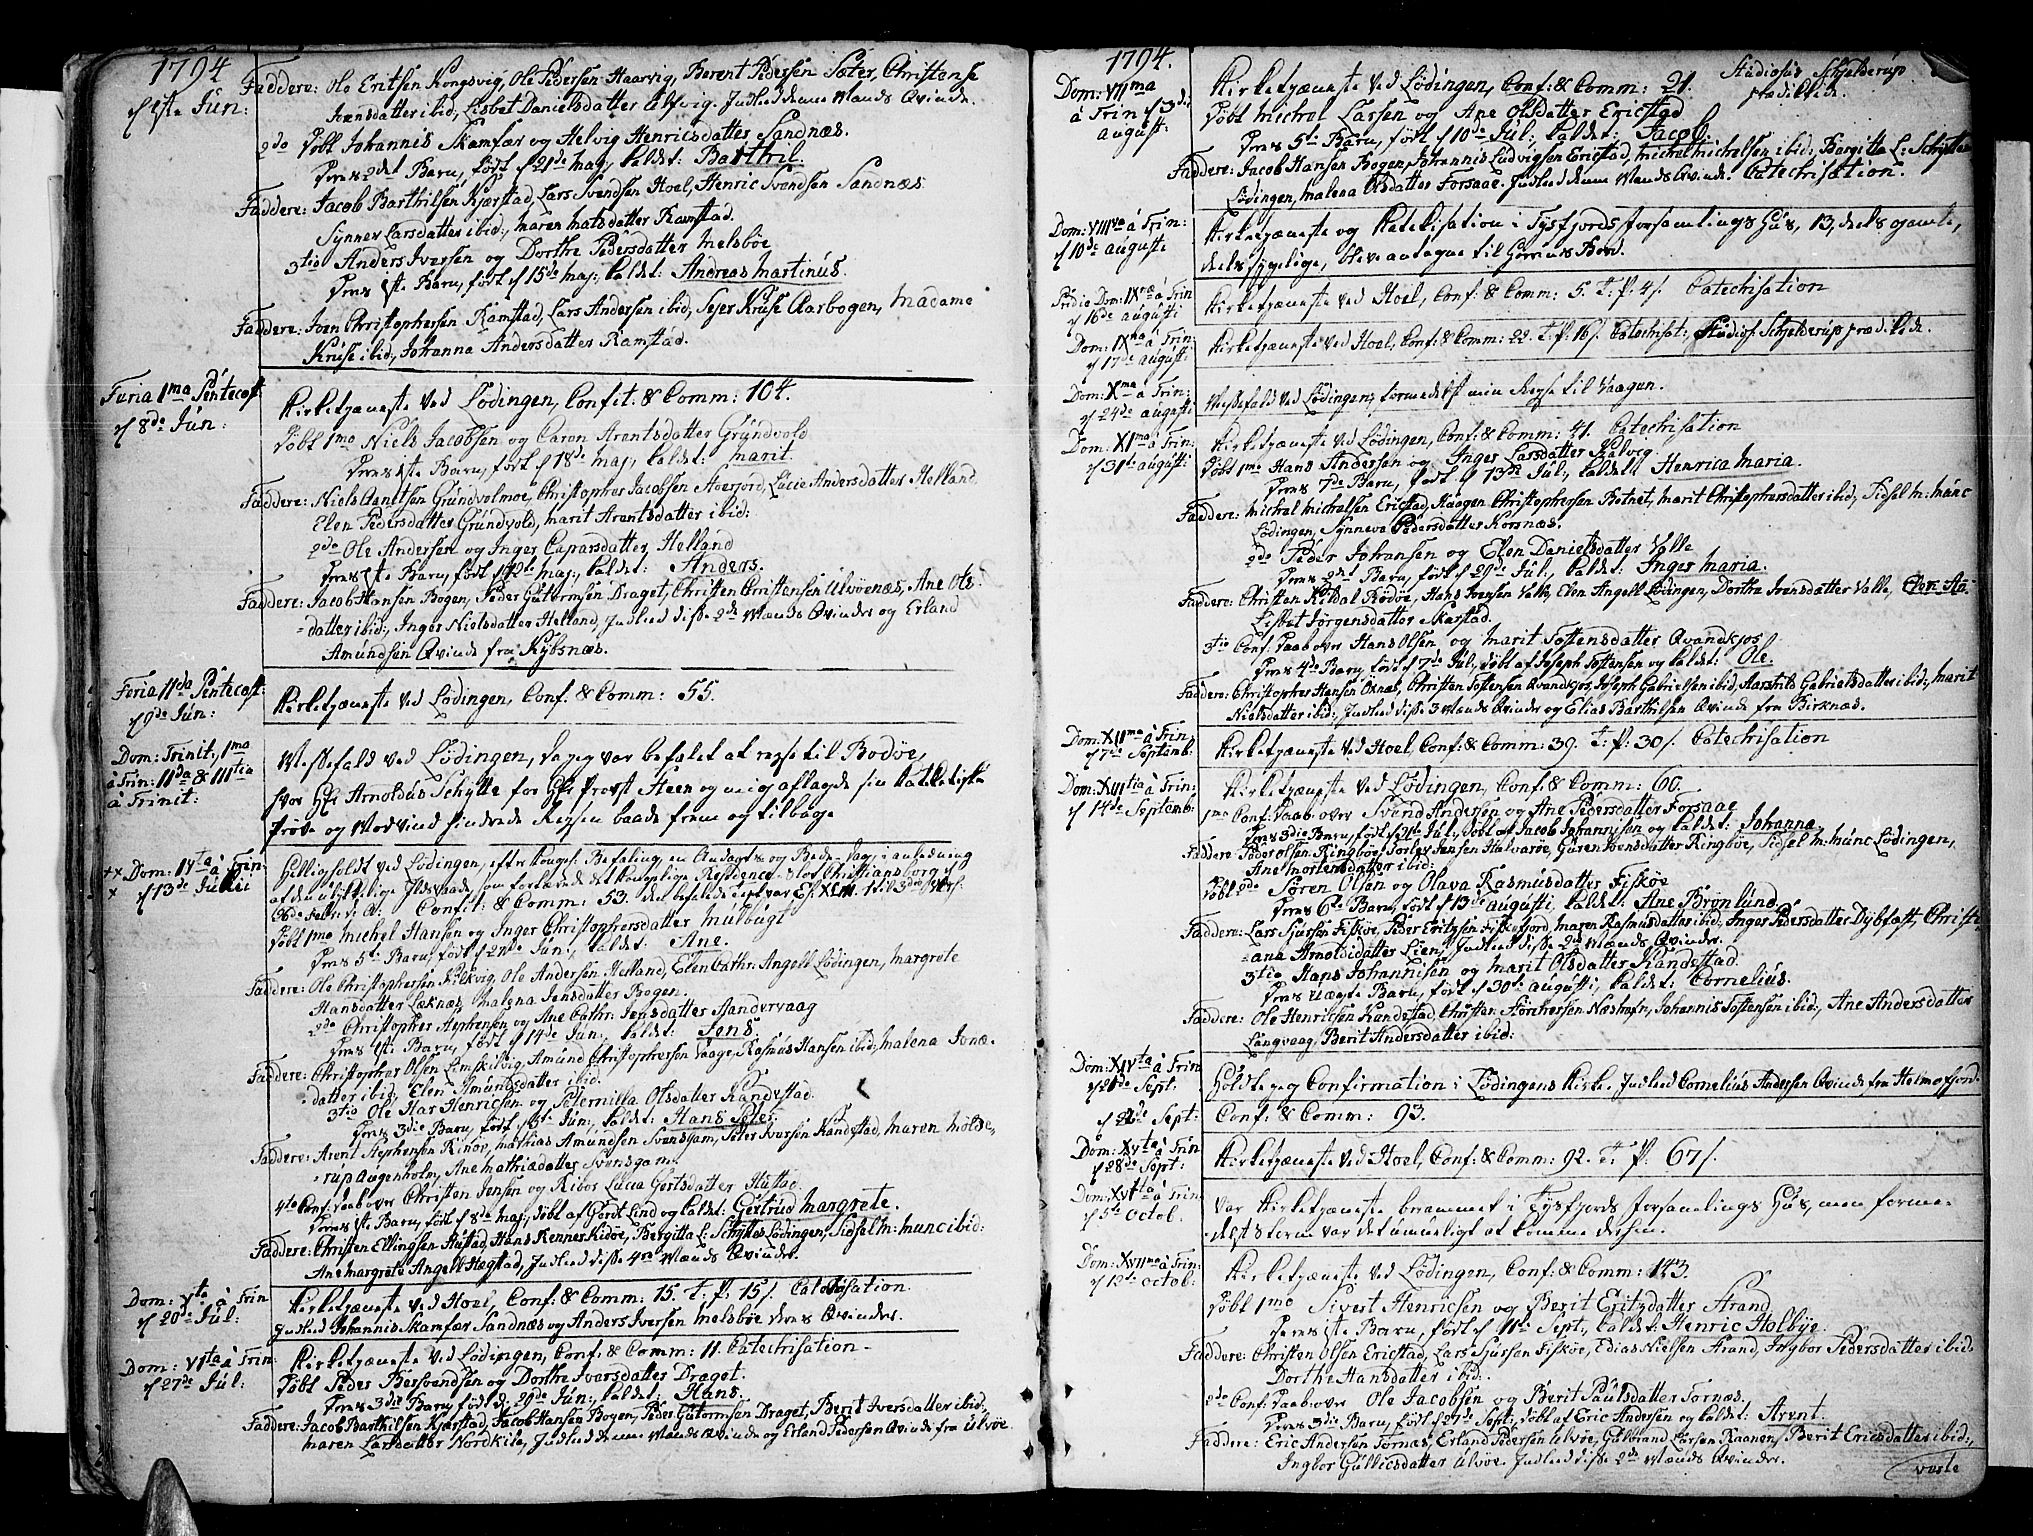 1794
d 1ste Jun:
Faddere: Ole Eritsen Kongsvig, Ole Pedersen Haarvig, Berent Pedersen Sæter, Christense
Ivensdatter ibid, Lisbet Danielsdatter Ulvig. Indled denne Mands Qvinde.
2do Døbt Johannis Skamfær og Helvig Henricsdatter Sandnæs.
Deres 2det Barn, født d 21de Maj, kaldet: Barthil.
Faddere: Jacob Barthilsen Kjærstad, Lars Svendsen Hoel, Henric Svendsen Sandnæs
Synner Larsdatter ibid:, Maren Matsdatter Ramstad.
3tio Anders Iversen og Dorthe Pedersdatter Melsbøe
Deres 1ste Barn, født d 15de Maj; kaldet: Andreas Martinus.
Faddere: Joen Christophersen Ramstad, Lars Andersen ibid, Sejer Kruse Aarbogen, Madame
Kruse ibid, Johanna Andersdatter Ramstad.
Furia 1ma Pentecost
d 8de Jun:
Kirketjæneste ved Lødingen, Confit. & Comm: 104.
Døbt 1mo Niels Jacobsen og Caren Arentsdatter Grundvold
Deres 1ste Barn, født d 18de Maj, kaldet: Marit.
Faddere: Niels Arentsen Grundvolmoe, Christopher Jacobsen Averfjord, Lucie Andersdatter Helland,
Elen Pedersdatter Grundvold, Marit Arentsdatter ibid:
2do Ole Andersen og Inger Caparsdatter Helland
Deres 1ste Barn, født d 12de Maj, kaldet: Anders.
Faddere: Jacob Hansen Bogen, Peder Gutormsen Draget, Christen Christensen Ulvøenæs, Ane Ols-
-datter ibid:, Inger Nielsdatter Helland, Indled disse 2de Mænds Qvinder og Erland
Amundsen Qvinde fra Kybsnæs.
Feria 11da Pentecost:
d 9de Jun:
Kirketjæneste ved Lødingen, Conf: & Comm: 55.
Dom: Trinit, 1ma
à Trin: 11da & 111tia
à Trinit:
Messefald ved Lødingen, da jeg var befalet at rejse til Bodøe,
hvor Hr Arnoldus Schytte for Hr Provst Steen og mig aflagde sin Katekektiske
Prøve og Modvind hindrede Rejsen baade frem og tilbage.
Dom: IVta à Trin:
d 13de Julii
Helligholdt ved Lødingen, efter Kongel: Befaling en Andagts og Bede-dag, i anledning
af den ulykkelige Ildsvaade, som fortærede det kongelige Residence-Slot Christiansborg d
26de Febr: i A: Confit: & Comm: 53. den befalede Text var Es: XLIII. 1 til 3die Vers.
Døbt 1mo Michel Hansen og Inger Christophersdatter Mulbugt
Deres 5te Barn, født d 22de Jun:, kaldet: Ane.
Faddere: Ole Christophersen Kilkvig, Ole Andersen Helland, Elen Cathr: Angell Lødingen, Margrete
Hansdatter Leknæs, Malena Jensdatter Bogen.
2do Christopher Stephensen og Ane Cathr: Jensdatter Sandervaag
Deres 1ste Barn, født d 14de Jun:, kaldet: Jens.
Faddere: Christopher Olsen Limskilvig, Amund Christophersen Vaage, Rasmus Hansen ibid:, Malena Jonæ-
-datter ibid, Elen Amundsdatter ibid.
3tio Ole Har Henricsen og Peternilla Olsdatter Kandestad.
Deres 3die Barn, født d 5te Jun:, kaldet: Hans Peter.
Faddere: Arent Stephensen Rinøe, Mathias Amundsen Svensgam, Peter Iversen Kandestad, Maren Holde-
-rup Augenholm, Ane Mathiadatter Svensgam.
4to Conf: Daab over Christen Jensen og Ribor Lucia Gertsdatter Hustad
Deres 1ste Barn, født d 8de Maj:, døbt af Gerdt Lind og kaldet: Gertrud Margrete.
Faddere: Christen Ellingsen Hustad, Hans Renner Kidøe, Bergitta L: Schyttes Lødingen, Sidsel M: Munc ibid:
Ane Margrete Angell Hegstad, Indled disse 4re Mænds Qvinder.
Dom: Vta à Trin
d 20de Jul:
Kirketjæneste ved Hoel, Conf: & Comm: 15. T. P. 15/. Catechisation.
Indled Johannis Skamfær Sandnæs og Anders Iversen Melsbøe deres Qvinder.
Dom: VIta à Trin:
d 27de Jul:
Kirketjæneste ved Lødingen, Conf: & Comm: 11. Catechisation -
Døbt Peder Bersvendsen og Dorthe Iversdatter Draget.
Deres 3die Barn, født d 29de Jun:, kaldet: Hans.
Faddere: Jacob Barthilsen Kjærstad, Jacob Hansen Bogen, Peder Gutormsen Draget, Berit Iversdatter ibid:,
Maren Larsdatter Nordkile, Indled denne Mands Qvinde og Erland Pedersen Qvinde fra Ulvøe
1794.
Dom: VIIma
à Trin d 3die
Augusti:
Kirketjæneste ved Lødingen, Conf: & Comm: 21. Studiosus Schjelderup
prædikede.
Døbt Michel Larsen og Ane Olsdatter Ericstad
Deres 5te Barn, født d 10de Jul:, kaldet: Jacob.
Faddere: Jacob Hansen Bogen, Johannis Ludvigsen Ericstad, Michel Michelsen ibid:, Bergitta L: Schyttes
Lødingen, Malena Olsdatter Forsaae. Indled denne Mands Qvinde. Catechisation.
Dom: VIIIva à Trin:
d 10de Augusti
Kirketjæneste og Katekisation i Tysfjords forsamlings Huus, 13, deels gamle,
deels sygelige, bleve antagne til Herrens Bord.
Pridie Dom: IXnæ à Trin
d 16de Augusti
Kirketjæneste ved Hoel, Conf: & Comm: 5. T. P. 4/. Catechisation
Dom: IXna à Trin
d 17de Augusti
Kirketjæneste ved Hoel, Conf: & Comm: 22. T. P. 16/. Catechisat:, Studios: Schjelderup prædikede.
Dom: Xma à Trin:
d 24de Augusti
Messefald ved Lødingen, formedelst min Rejse til Vaagen.
Dom: XIma à Trin:
d 31te Augusti:
Kirketjæneste ved Lødingen, Conf: & Comm: 41. Catechisation
Døbt 1mo Hans Andersen og Inger Larsdatter Kalvig.
Deres 7de Barn, født d 13de Jul:, kaldet: Henrica Maria.
Faddere: Michel Michelsen Ericstad, Haagen Christophersen Botnet, Marit Christophersdatter ibid:, Sidsel M: Munc
Lødingen, Synneva Pedersdatter Korsnæs.
2do Peder Johansen og Elen Danielsdatter Valle
Deres 2det Barn, født d 29de Jul:, kaldet: Inger Maria.
Faddere: Christen Kildal Rødøe, Hans Ivensen Valle, Elen Angell Lødingen, Dorthe Ivensdatter Valle,
Lisbet Jørgensdatter Skarstad.
3tio Conf. Daab over Hans Olsen og Marit Tostensdatter Qvandkjos
Deres 4de Barn, født d 7de Jul:, døbt af Joseph Tostensen og kaldet: Ole.
Faddere: Christopher Hansen Oxnæs, Christen Tostensen Qvandkjos, Joseph Gabrielsen ibid, Aarstrils Gabrielsdatter ibid:, Marit
Nielsdatter ibid:, Indled disse 3 Mænds Qvinder og Elias Barthilsen Qvinde fra Birknæs.
Dom: XIIma à Trin:
d 7de Septemb:
Kirketjæneste ved Hoel, Conf: & Comm: 39. T: P: 30/. Catechisation
Dom: XIIItia à Trin:
d 14de Septemb:
Kirketjæneste ved Lødingen, Conf: & Comm: 60.
1mo Conf: Daab over Svend Andersen og Ane Pedersdatter Forsaae
Deres 3die Barn, født d 21de Jul:, døbt af Jacob Johannissen og kaldet: Johanna.
Faddere: Peder Olsen Ringbøe, Torlev Jensen Halvarøe, Guren Svensdatter Ringbøe, Sidsel M: Munc Lødingen,
Ane Mortensdatter ibid:
Døbt 2do Søren Olsen og Olava Rasmusdatter Fiskøe
Deres 6te Barn, født d 13de Augusti, kaldet: Ane Brønlund.
Faddere: Lars Sjursen Fiskøe, Peder Eritzsen Fiskefjord, Maren Rasmusdatter ibid:, Inger Pedersdatter Dybfæst, Christi-
-ana Arnoldidatter Lien, Indled disse 2de Mænds Qvinder.
3tio Hans Johannissen og Marit Olsdatter Kandestad
Deres uægte Barn, født d 30te Augusti, kaldet: Cornelius.
Faddere: Ole Henricsen Kandestad, Christen Størkersen Næshafn, Johannis Tostensen ibid:, Ane Andersdatter
Langvaag, Berit Andersdatter ibid:
Dom: XIVta à Trin:
d 21de Sept:
Holdte jeg Confirmation i Lødingens Kirke. Indled Cornelius Andersen Qvinde fra Helmofjord.
d 22de Sept:
Conf: & Comm: 93.
Dom: XVta à Trin:
d 28de Sept:
Kirketjæneste ved Hoel, Conf: & Comm: 92. T. P. 67/.
Dom: XVIta à Trin:
d 5te Octob.
Var Kirketjæneste berammet i Tysfjords forsamlings Huus, men forme-
-delst Storm var det umueligt at komme dersen.
Dom: XVIIma à Trin:
d 12te Octob:
Kirketjæneste ved Lødingen, Conf: & Comm: 143.
Døbt 1mo Sivert Henricsen og Berit Eritzdatter Strand
Deres 1ste Barn, født d 11te Sept:, kaldet: Henric Holbye.
Faddere: Christen Olsen Ericstad, Lars Sjursen Fiskøe, Edias Nielsen Strand, Ingbor Pedersdatter ibid.
Dorthe Hansdatter ibid:
2do Conf: Daab over Ole Jacobsen og Berit Paulsdatter Tornæs,
Deres 3die Barn, født d 27de Sept:, døbt af Eric Andersen og kaldet: Arent.
Faddere: Eric Andersen Tornæs, Erland Pedersen Ulvøe, Gulbrand Larsen Kaanen, Berit Ericsdatter ibid:,
Ingbor Gullicsdatter Ulvøe. Indled disse 2de Mænds Qvinder.
verte